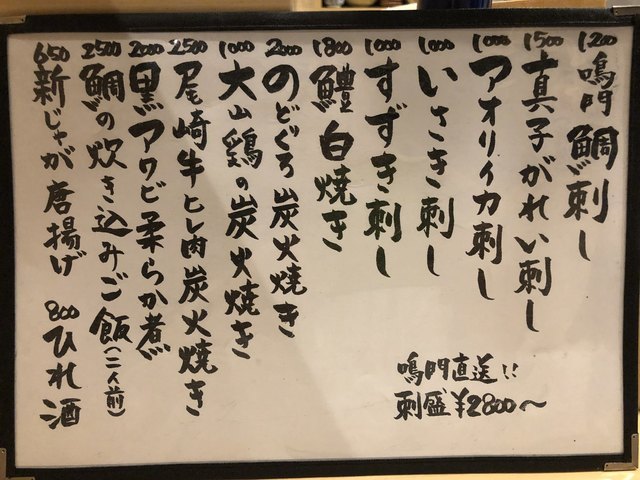 1200 鳴門鯛刺し
1500 真子がれい刺し
1000 アオリイカ刺し
1000 いさき刺し
1000 すずき刺し
1800 鱧白焼き
2000 のどぐろ炭火焼き
1000 大山鶏の炭火焼き
2500 尾崎牛ヒレ肉炭火焼き
2000 黒アワビ柔らか煮
2500 鯛の炊き込みご飯(二人前)
650 新じゃが唐揚げ
800 ひれ酒
鳴門直送!!
刺盛¥2800〜